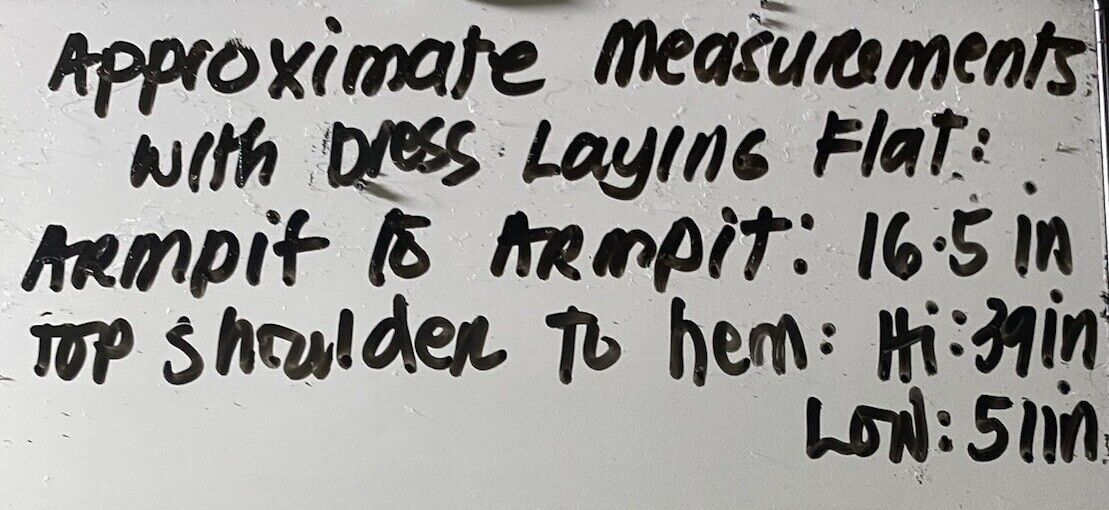 Approximate Measurements
With Dress Laying Flat:
Armpit to Armpit: 16.5 in
Top shoulder To hem: Hi: 39in
Low: 51in